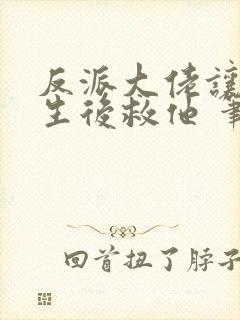 反派大佬讓
生後救他
回首扭了脖子